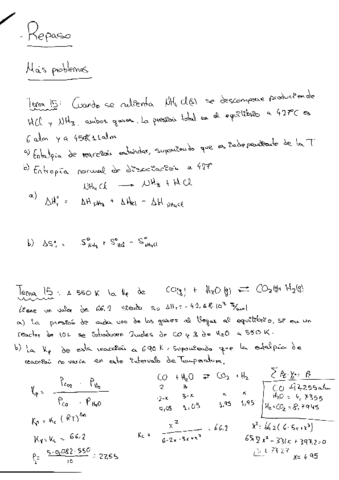 - Repaso
Más problemas
Tema 15: Cuando se calienta NH4Cl(s) se descompone produciendo
HCl y NH3, ambos gases. La presión total en el equilibrio a 427°C es
6 atm y a 459°C 11 atm
a) Entalpía de reacción estándar, suponiendo que es independiente de la T
b) Entropía normal de disociación a 427
NH4Cl → NH3 + HCl
a) ΔH° = ΔH NH3 + ΔHCl - ΔH NH4Cl
b) ΔS° = S°NH3 + S°HCl - S°NH4Cl
Tema 15: A 550 K la Kp de CO(g) + H2O(g) ⇌ CO2(g) + H2(g)
tiene un valor de 66.2 siendo su
a) La presión de cada uno de los gases al llegar al equilibrio, si en un
reactor de 10L se introducen 2 moles de CO y 3 de H2O a 550 K.
b) La Kp de esta reacción a 690 K, suponiendo que la entalpía de
reacción no varía en este intervalo de Temperatura.
CO + H2O ⇌ CO2 + H2
2 3
2-x 3-x x x
0,05 1.05 1,95 1,95
Kp = PCO2 · PH2 / PCO · PH2O
Kp = Kc (RT)
Kp = Kc = 66.2
Kc = x² / 6-2x-3x+x² = 66.2
x² = 66.2 (6-5x+x²)
65.2x² - 331x + 397.2 = 0
x = 1.95
P = 5·0,082·550 / 10 = 22.55